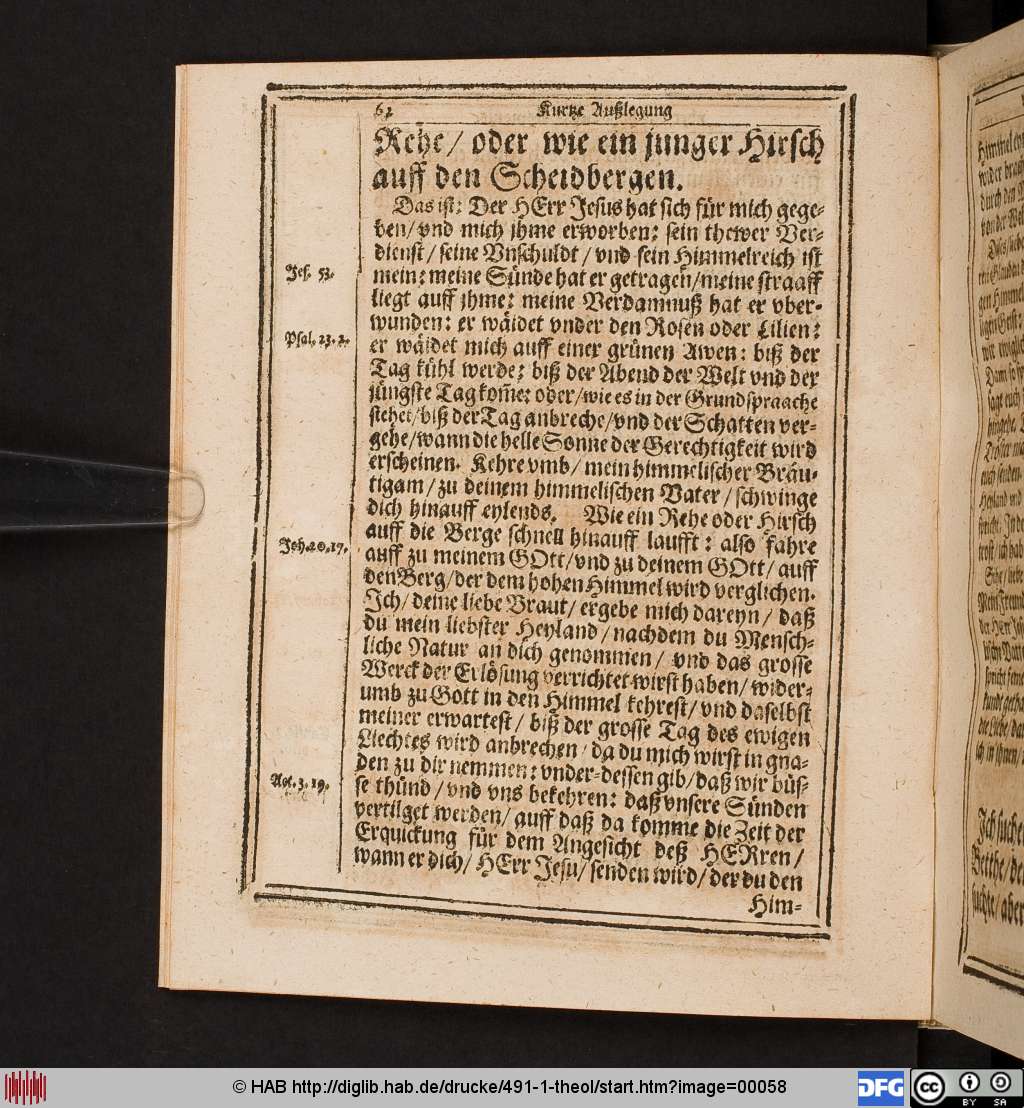 62 Kurtze Außlegung
Rehe/ oder wie ein junger Hirsch
auff den Scheidbergen.
Das ist: Der HErr Jesus hat sich für mich gege-
ben/ vnd mich jhme erworben: sein thewer Ver-
dienst/ seine Vnschuldt/ vnd sein Himmelreich ist
Jes. 53.
mein: meine Sünde hat er getragen/ meine straaff
liegt auff jhme: meine Verdamnuß hat er vber-
wunden: er wäidet vnder den Rosen oder Lilien:
Psal. 23. 2.
er wäidet mich auff einer grünen Awen: biß der
Tag kühl werde: biß der Abend der Welt vnd der
jüngste Tag kom̃e: oder/ wie es in der Grundspraache
stehet/ biß der Tag anbreche/ vnd der Schatten ver-
gehe/ wann die helle Sonne der Gerechtigkeit wird
erscheinen. Kehre vmb/ mein himmelischer Bräu-
tigam/ zu deinem himmelischen Vater/ schwinge
dich hinauff eylends. Wie ein Rehe oder Hirsch
auff die Berge schnell hinauff laufft: also fahre
Joh. 20. 17.
auff zu meinem GOtt/ vnd zu deinem GOtt/ auff
den Berg/ der dem hohen Himmel wird verglichen.
Ich/ deine liebe Braut/ ergebe mich dareyn/ daß
du mein liebster Heyland/ nachdem du Mensch-
liche Natur an dich genommen/ vnd das grosse
Werck der Erlösung verrichtet wirst haben/ wider-
umb zu Gott in den Himmel kehrest/ vnd daselbst
meiner erwartest/ biß der grosse Tag des ewigen
Liechtes wird anbrechen/ da du mich wirst in gna-
den zu dir nemmen: vnder-dessen gib/ daß wir büs-
Act. 3. 19.
se thünd/ vnd vns bekehren: daß vnsere Sünden
vertilget werden/ auff daß da komme die Zeit der
Erquickung für dem Angesicht deß HERren/
wann er dich/ HErr Jesu/ senden wird/ der du den
Him-
© HAB http://diglib.hab.de/drucke/491-1-theol/start.htm?image=00058
DFG
cc BY SA